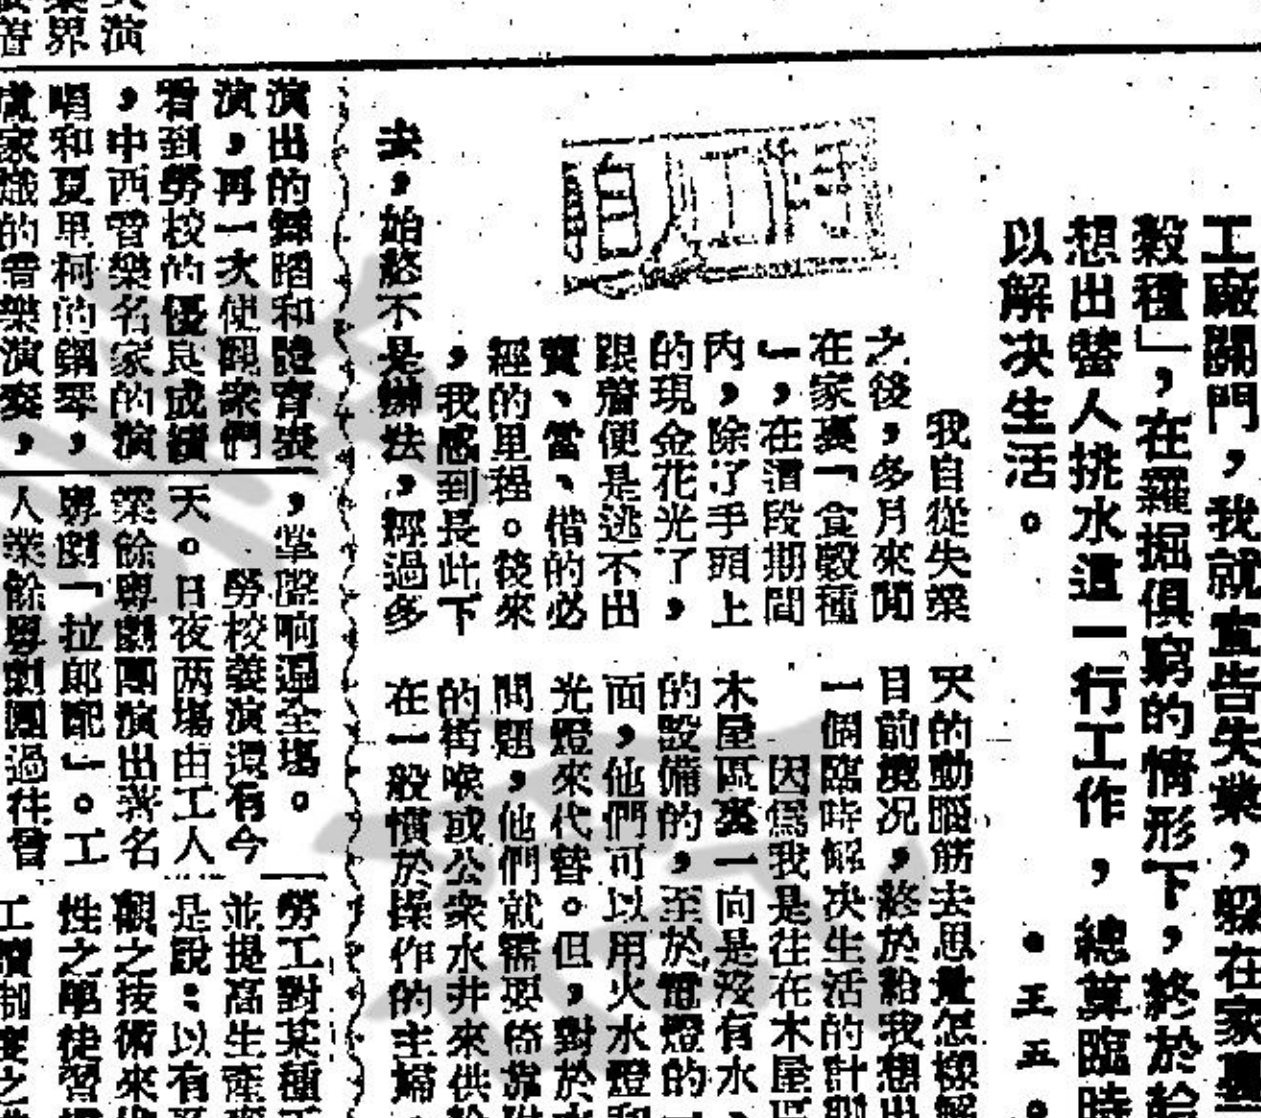 工廠關門，我就宣告失業，躲在家裏
穀種」，在羅掘俱窮的情形下，終於給
想出替人挑水這一行工作，總算臨時
以解決生活。
•王五•
我自從失業
之後，多月來閒
在家裏「食穀種
」，在這段期間
內，除了手頭上
的現金花光了，
跟着便是逃不出
賣、當、借的必
經的里程。後來
，我感到長此下
去，始終不是辦法，經過多
天的動腦筋去思量怎樣解
目前境况，終於給我想出
一個臨時解決生活的計劃
因爲我是住在木屋區
木屋區裏一向是沒有水、
的設備的，至於電燈的
面，他們可以用火水燈和
光燈來代替。但，對於水
問題，他們就需要倚靠附
的街喉或公衆水井來供給
在一般慣於操作的主婦
演出的舞蹈和體育表
演，再一次使觀衆們
看到勞校的優良成績
，中西音樂名家的演
唱和夏里柯的鋼琴，
家熾的音樂演奏，
，掌聲响遍全塲。
勞校義演還有今
天。日夜两塲由工人
業餘粵劇團演出著名
粵劇「拉郎配」。工
人業餘粵劇團過往曾
勞工對某種
並提高生產
是說：以有
觀之技術來
性之單
工
制度之
演
界